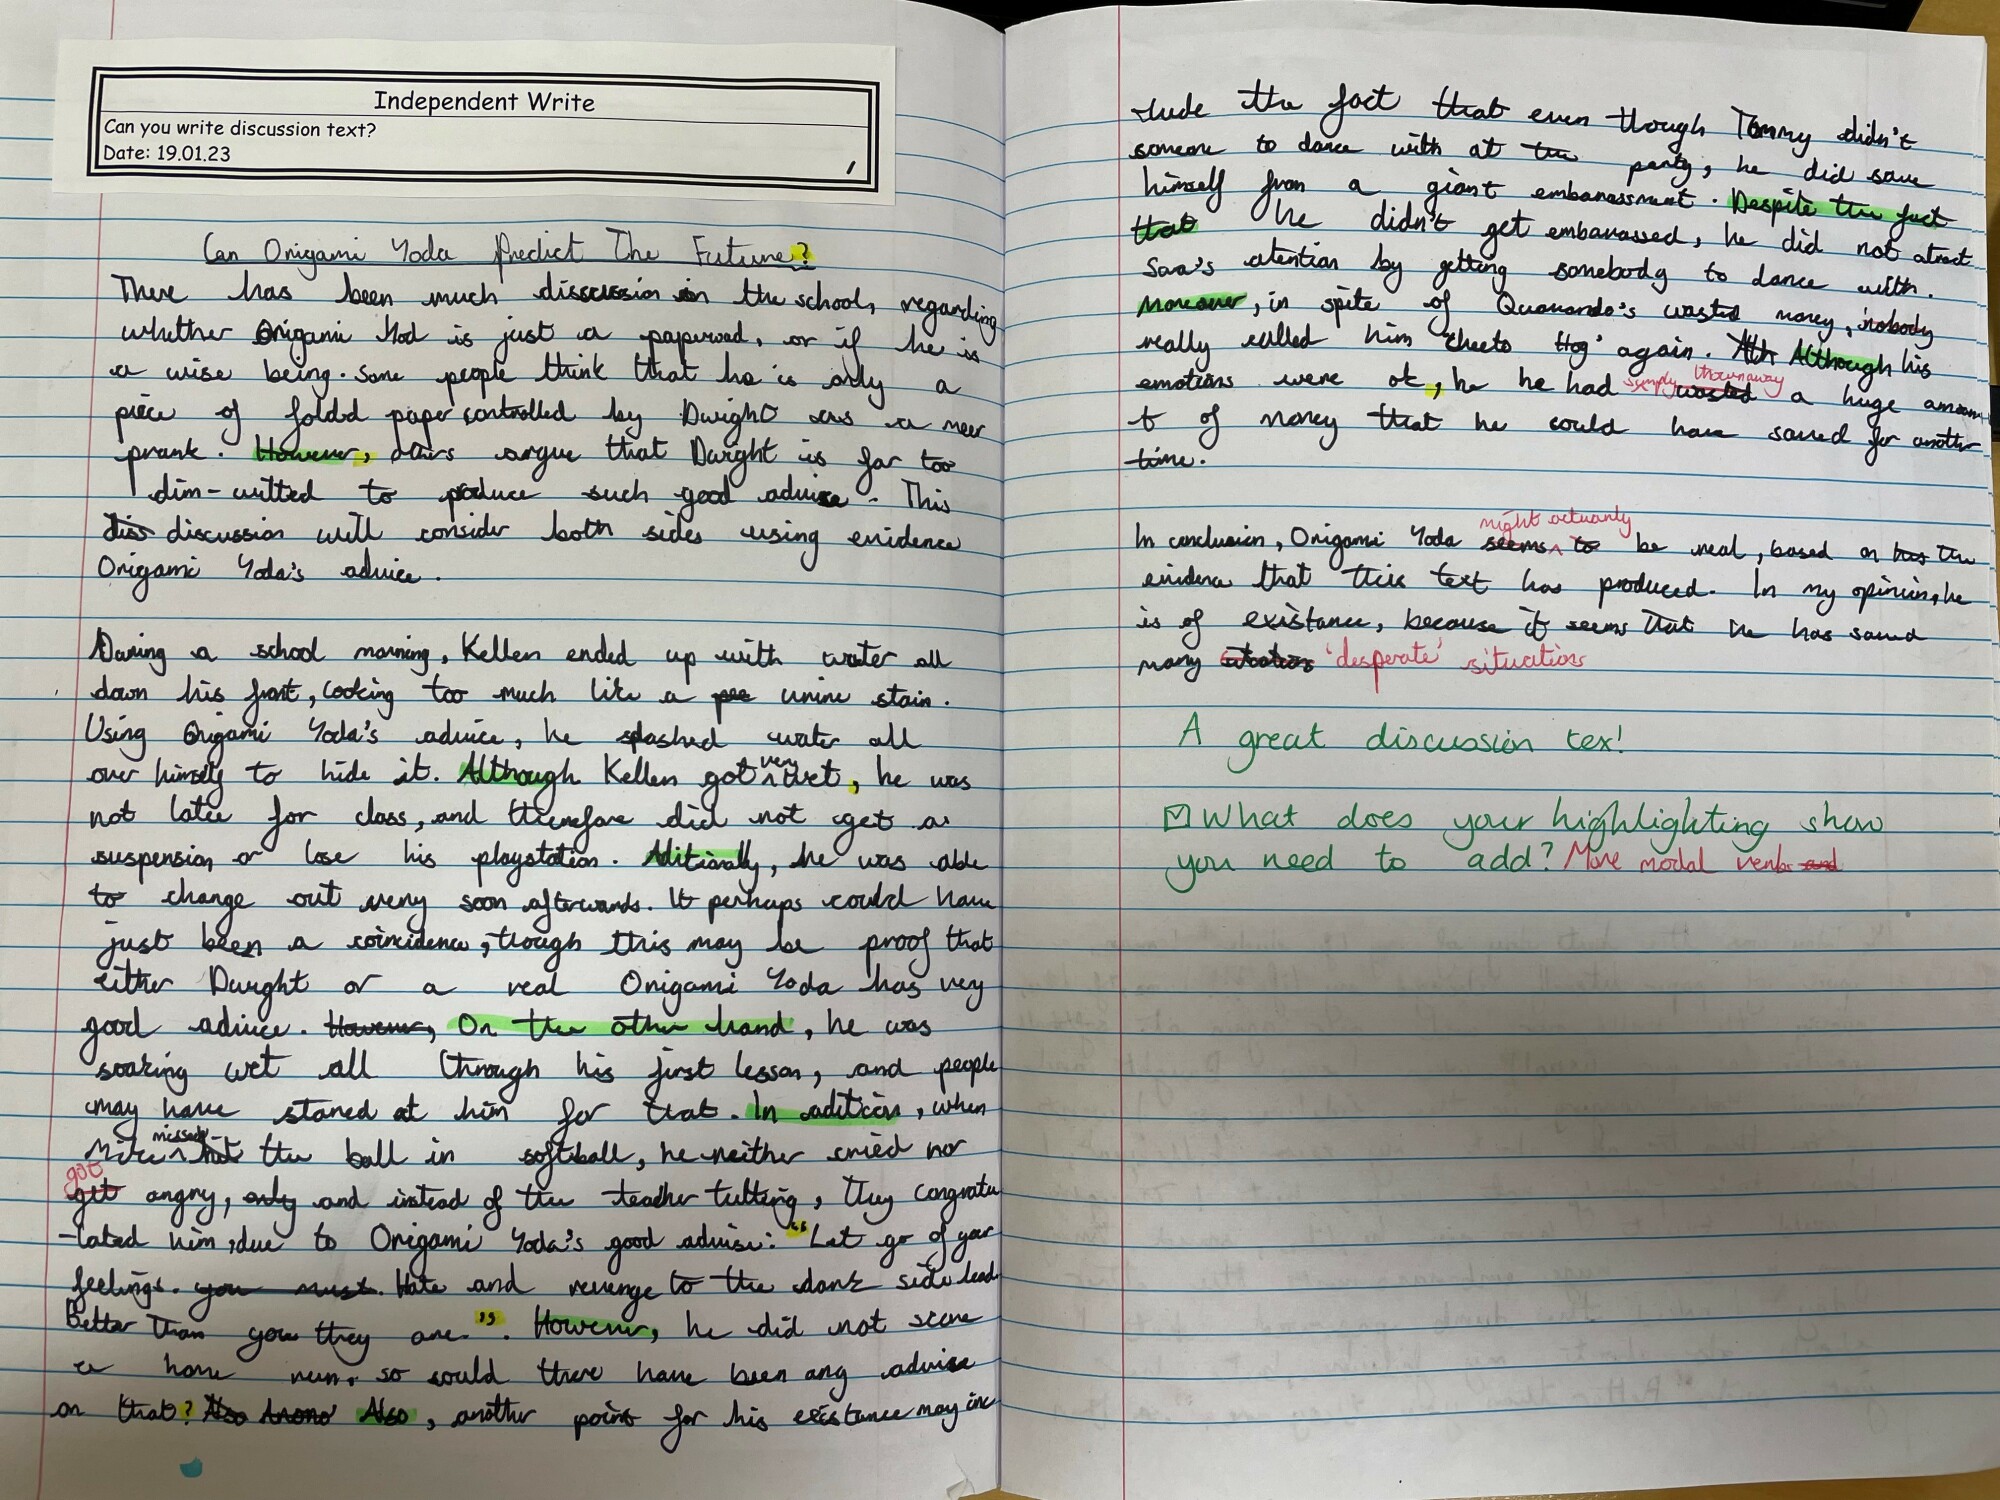 Independent Write
Can you write discussion text?
Date: 19.01.23
Can Origami Yoda Predict The Future?
There has been much disscussion in the school, regarding
whether Origami Yod is just a paperwad, or if he is
a wise being. Some people think that he is only a
piece of folded paper controlled by Dwight as a meer
prank. However, others argue that Dwight is far too
dim-witted to produce such good advise. This
diss discussion will consider both sides using evidence
Origami Yoda's advice.
During a school morning, Kellen ended up with water all
down his front, looking too much like a pee urine stain.
Using Origami Yoda's advice, he splashed water all
over himself to hide it. Although Kellen got very wet, he was
not late for class, and therefore did not get a
suspension or lose his playstation. Aditionally, he was able
to change out very soon afterwards. It perhaps could have
just been a coincidence, though this may be proof that
either Dwight or a real Origami Yoda has very
good advice. However, On the other hand, he was
soaking wet all through his first lesson, and people
may have stared at him for that. In adition, when
Mike missed hit the ball in softball, he neither cried nor
got get angry, only and instead of the teacher tutting, they congratu
-lated him, due to Origami Yoda's good advise: "Let go of your
feelings. you must. Hate and revenge to the dark side lead
Better than you they are.". However, he did not score
a home run, so could there have been any advise
on that? Also Anono Also, another point for his existance may inc
-lude the fact that even though Tommy didn't
someone to dance with at the party, he did save
himself from a giant embarrassment. Despite the fact
that he didn't get embarassed, he did not atract
Sara's atention by getting somebody to dance with.
Moreover, in spite of Quavondo's wasted money, nobody
really called him 'cheeto Hog' again. Alth Although his
emotions were ok, he he had simply thrown away wasted a huge amoun
t of money that he could have saved for another
time.
In conclusion, Origami Yoda might actually seems to be real, based on has the
evidence that this text has produced. In my opinion, he
is of existance, because it seems that he has saved
many situations 'desperate' situations
A great discussion tex!
What does your highlighting show
you need to add? More modal verbs and